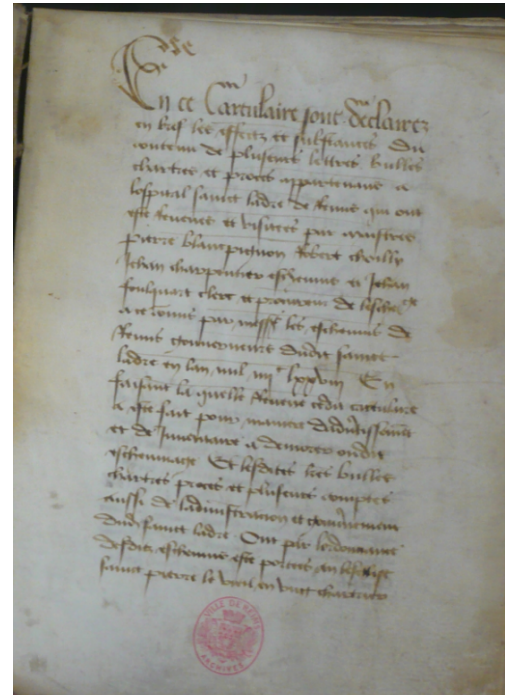 En ce Cartulaire sont declairez
en bref les effectz et substances du
contenu de plusieurs lettres bulles
chartres et proces appartenans a
lospital sainct ladre de Reims qui ont
este Reveues et visitees par maistres
pierre Blancpignon Robert
Jehan charpentier eschevins et Jehan
foulquart clerc et procureur de
a ce commis par les eschevins de
Reims gouverneurs dudit sainct
ladre en lan mil iiiic lxxviii En
faisant la quelle Reveue cedit cartulaire
a este fait pour maniere
et de Inventaire a demorer oudit
eschevinage Et lesdites lres bulles
chartres proces et plusieurs comptes
aussi de ladministracion et gouvernement
dudit sainct ladre Ont par lordonnance
desdits eschevins este portees en leglise
sainct pierre le vieil en ung
VILLE DE REIMS
ARCHIVES